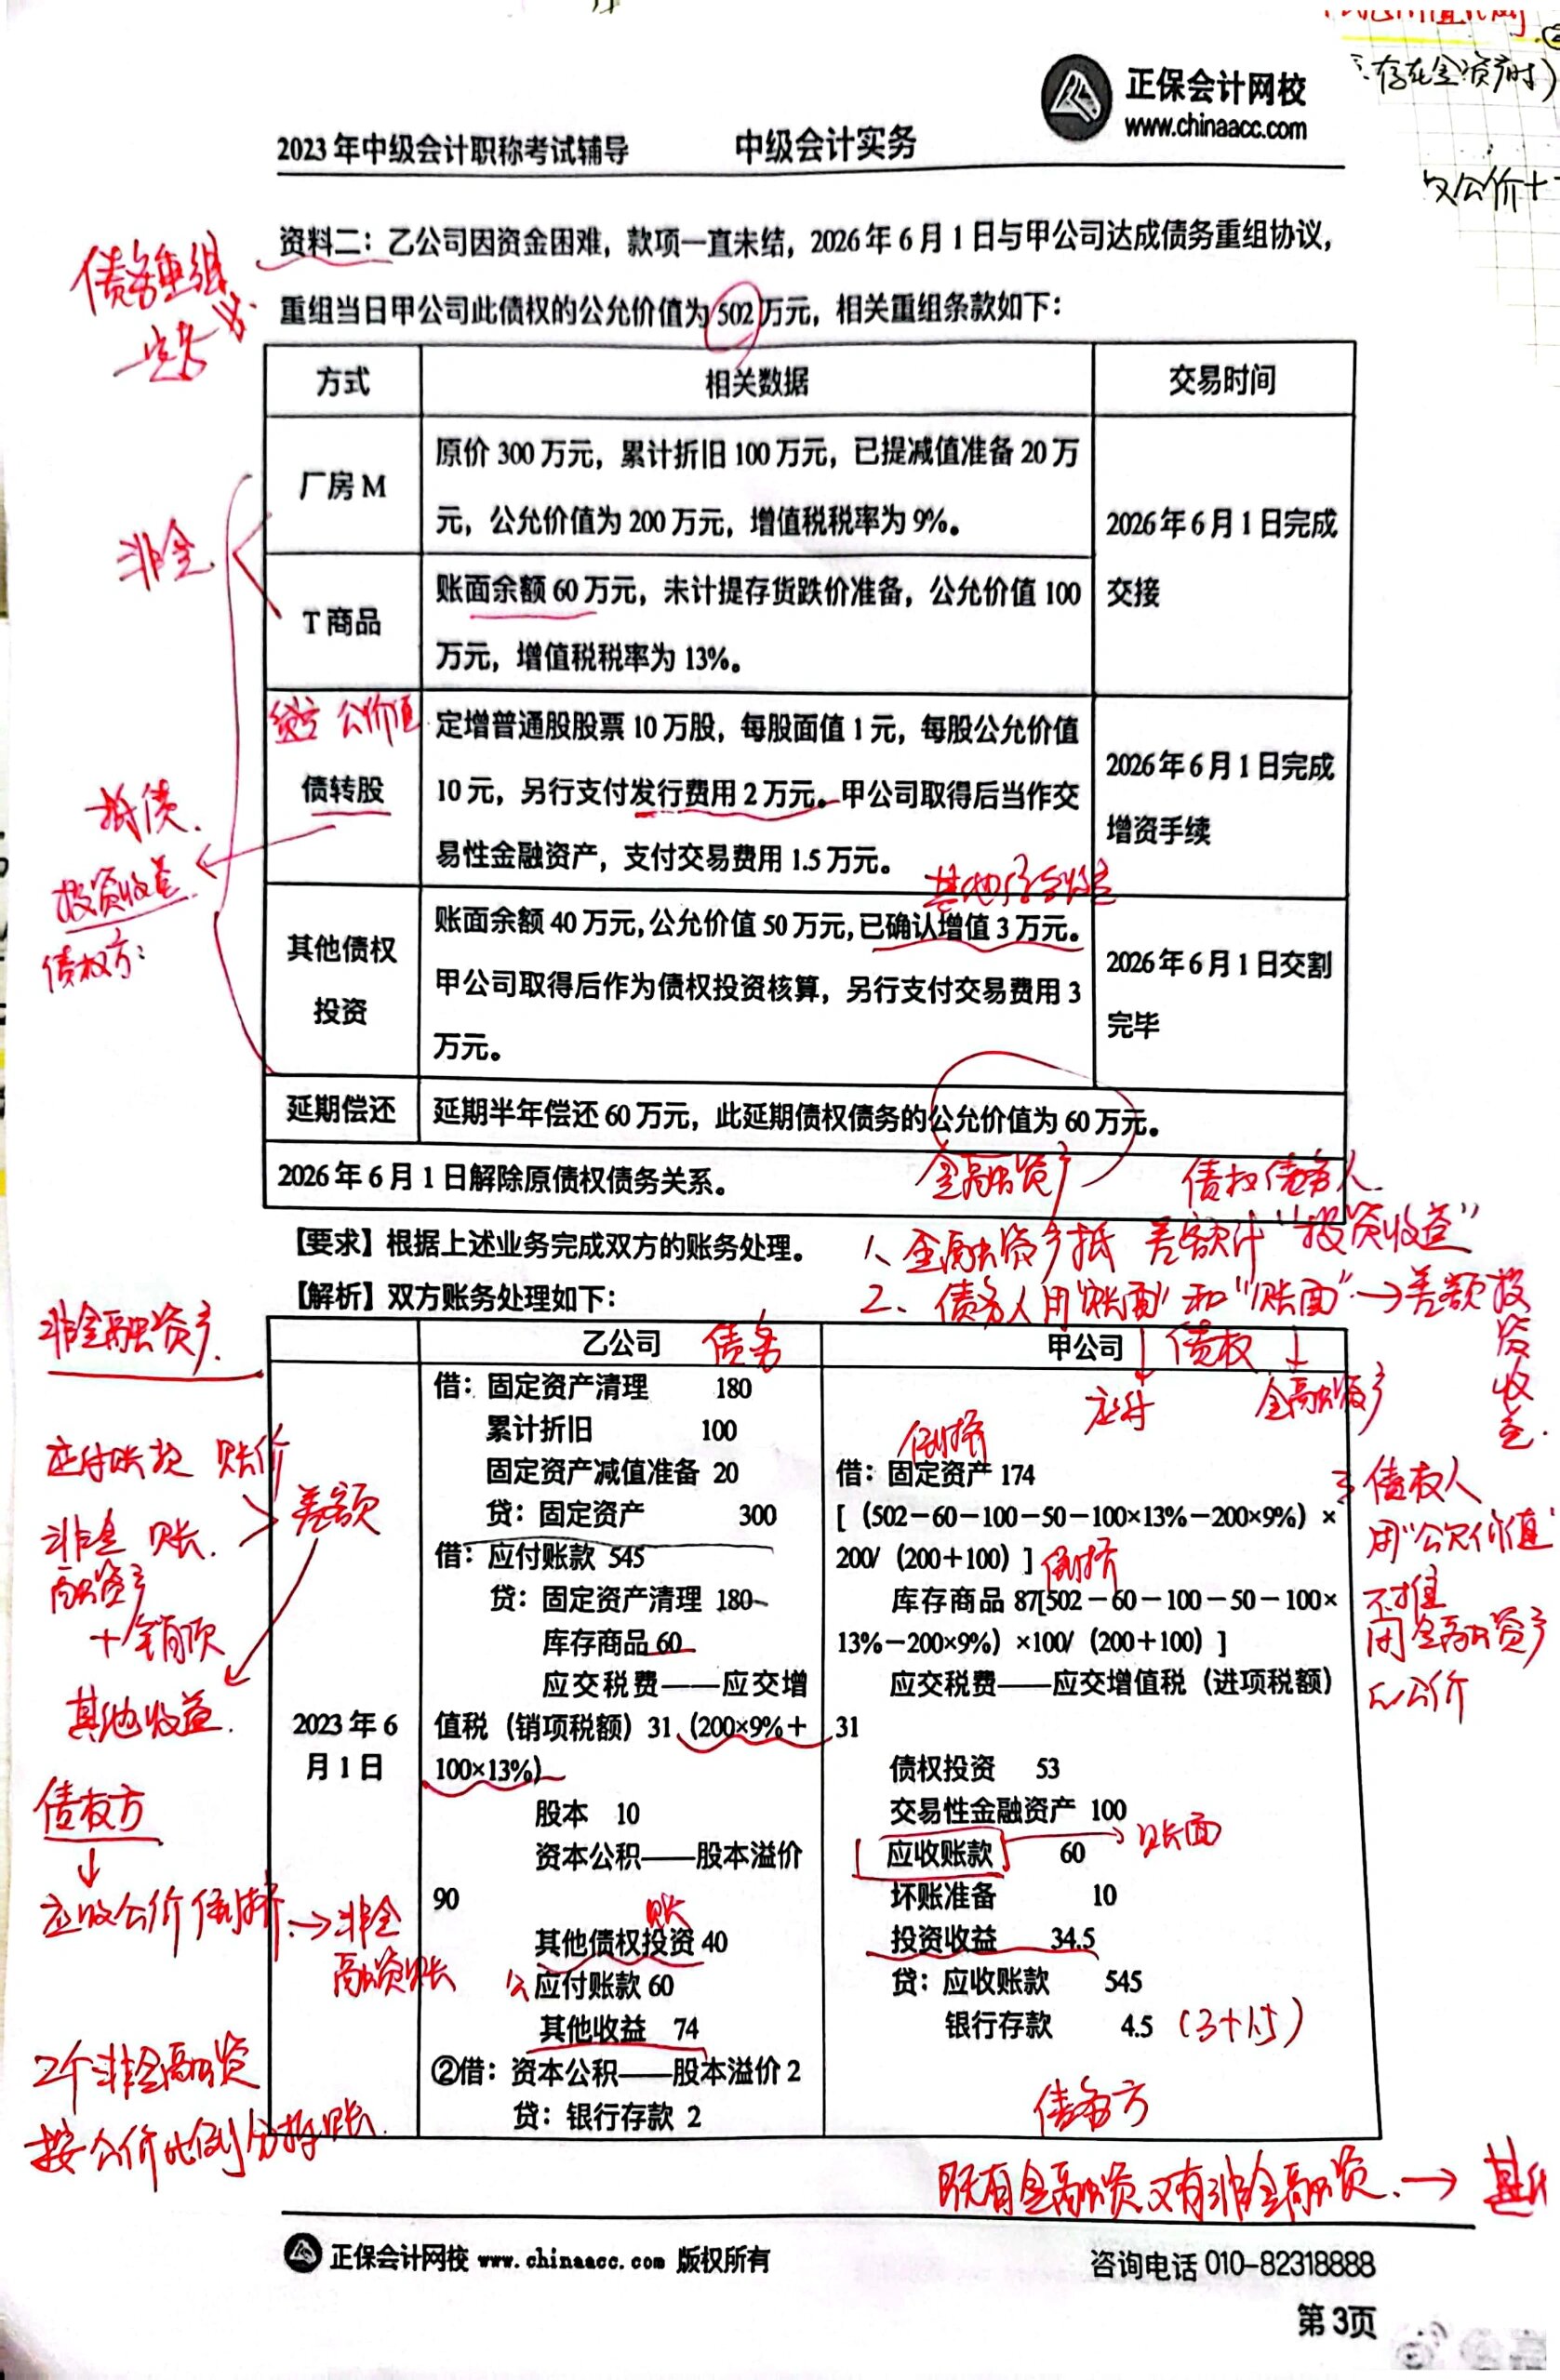 存在金资产时)
正保会计网校
www.chinaacc.com
2023年中级会计职称考试辅导 中级会计实务
又公价+
债务重组
资料二：乙公司因资金困难，款项一直未结，2026年6月1日与甲公司达成债务重组协议，
重组当日甲公司此债权的公允价值为502万元，相关重组条款如下：
方式 相关数据 交易时间
非金
厂房M
原价300万元，累计折旧100万元，已提减值准备20万
元，公允价值为200万元，增值税税率为9%。
2026年6月1日完成
交接
T商品
账面余额60万元，未计提存货跌价准备，公允价值100
万元，增值税税率为13%。
贷方 公价值
债转股
定增普通股股票10万股，每股面值1元，每股公允价值
10元，另行支付发行费用2万元。甲公司取得后当作交
易性金融资产，支付交易费用1.5万元。
2026年6月1日完成
增资手续
抵债.
投资收益
债权方：
其他综合收益
其他债权
投资
账面余额40万元，公允价值50万元，已确认增值3万元。
甲公司取得后作为债权投资核算，另行支付交易费用3
万元。
2026年6月1日交割
完毕
延期偿还 延期半年偿还60万元，此延期债权债务的公允价值为60万元。
2026年6月1日解除原债权债务关系。
金融资产
债权债务人
【要求】根据上述业务完成双方的账务处理。
1、金融资产抵 差额计“投资收益”
【解析】双方账务处理如下：
2、债务人用“账面”和“账面”→差额投资收益.
债权
应付
金融资产
非金融资产.
应付账款 账价
非金融资产 账.
+销项
差额
其他收益.
债权方
应收公价倒挤→非金融资账
2个非金融资
按公价比例分拆账.
乙公司 债务 甲公司
2023年6
月1日
借：固定资产清理 180
累计折旧 100
固定资产减值准备 20
贷：固定资产 300
借：应付账款 545
贷：固定资产清理 180
库存商品 60
应交税费——应交增
值税（销项税额）31（200×9%+
100×13%）
股本 10
资本公积——股本溢价
90
账
其他债权投资 40
公 应付账款 60
其他收益 74
②借：资本公积——股本溢价 2
贷：银行存款 2
倒挤
借：固定资产 174
[（502-60-100-50-100×13%-200×9%）×
200/（200+100）] 倒挤
库存商品 87[502-60-100-50-100×
13%-200×9%）×100/（200+100）]
应交税费——应交增值税（进项税额）
31
债权投资 53
交易性金融资产 100
应收账款 60 账面
坏账准备 10
投资收益 34.5
贷：应收账款 545
银行存款 4.5 (3+1.5)
债权人
用“公允价值”
不准
用金融资产
公价
债务方
既有金融资又有非金融资.→
正保会计网校 www.chinaacc.com 版权所有
咨询电话 010-82318888
第3页